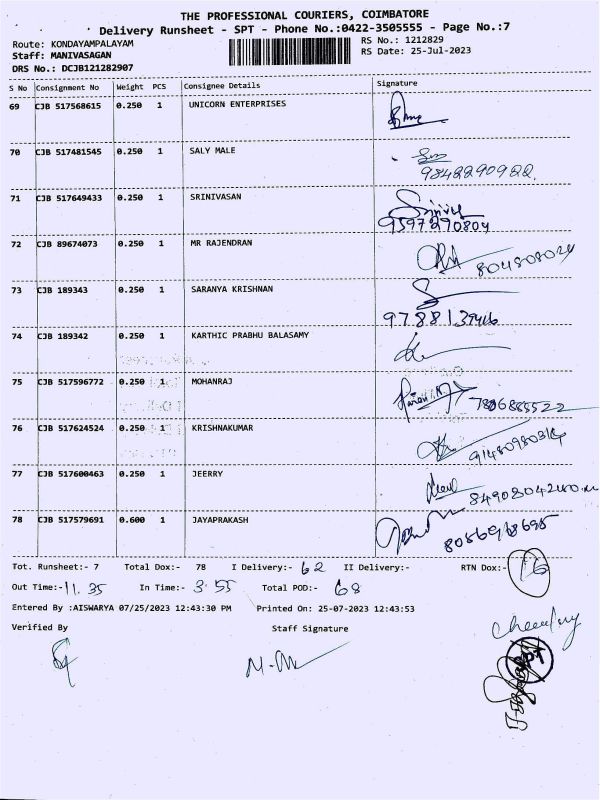 THE PROFESSIONAL COURIERS, COIMBATORE
Delivery Runsheet - SPT - Phone No.:0422-3505555 - Page No.:7
Route: KONDAYAMPALAYAM RS No.: 1212829
Staff: MANIVASAGAN RS Date: 25-Jul-2023
DRS No.: DCJB121282907
S No Consignment No Weight PCS Consignee Details Signature
69 CJB 517568615 0.250 1 UNICORN ENTERPRISES
70 CJB 517481545 0.250 1 SALY MALE
9842290922.
71 CJB 517649433 0.250 1 SRINIVASAN
9597270804
72 CJB 89674073 0.250 1 MR RAJENDRAN
73 CJB 189343 0.250 1 SARANYA KRISHNAN
74 CJB 189342 0.250 1 KARTHIC PRABHU BALASAMY
75 CJB 517596772 0.250 1 MOHANRAJ
76 CJB 517624524 0.250 1 KRISHNAKUMAR
77 CJB 517600463 0.250 1 JEERRY
78 CJB 517579691 0.600 1 JAYAPRAKASH
Tot. Runsheet:- 7 Total Dox:- 78 I Delivery:- 62 II Delivery:- RTN Dox:- 16
Out Time:- 11.35 In Time:- 3.55 Total POD:- 68
Entered By :AISWARYA 07/25/2023 12:43:30 PM Printed On: 25-07-2023 12:43:53
Verified By Staff Signature